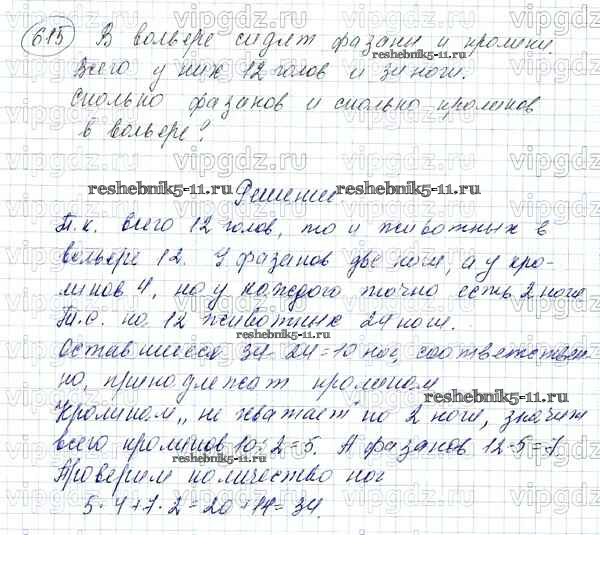 615 В вольере сидят фазаны и кролики.
Всего у них 12 голов и 34 ноги.
Сколько фазанов и сколько кроликов
в вольере?
reshebnik5-11.ru
Решение
Т.к. всего 12 голов, то и животных в
вольере 12. У фазанов две ноги, а у кро-
ликов 4, но у каждого точно есть 2 ноги
Т.е. на 12 животных 24 ноги.
Оставшиеся 34-24=10 ног, соответствен-
но, принадлежат кроликам
Кроликам „не хватает" по 2 ноги, значит
всего кроликов 10:2=5. А фазанов 12-5=7.
Проверим количество ног
5·4+7·2=20+14=34.
vipgdz.ru